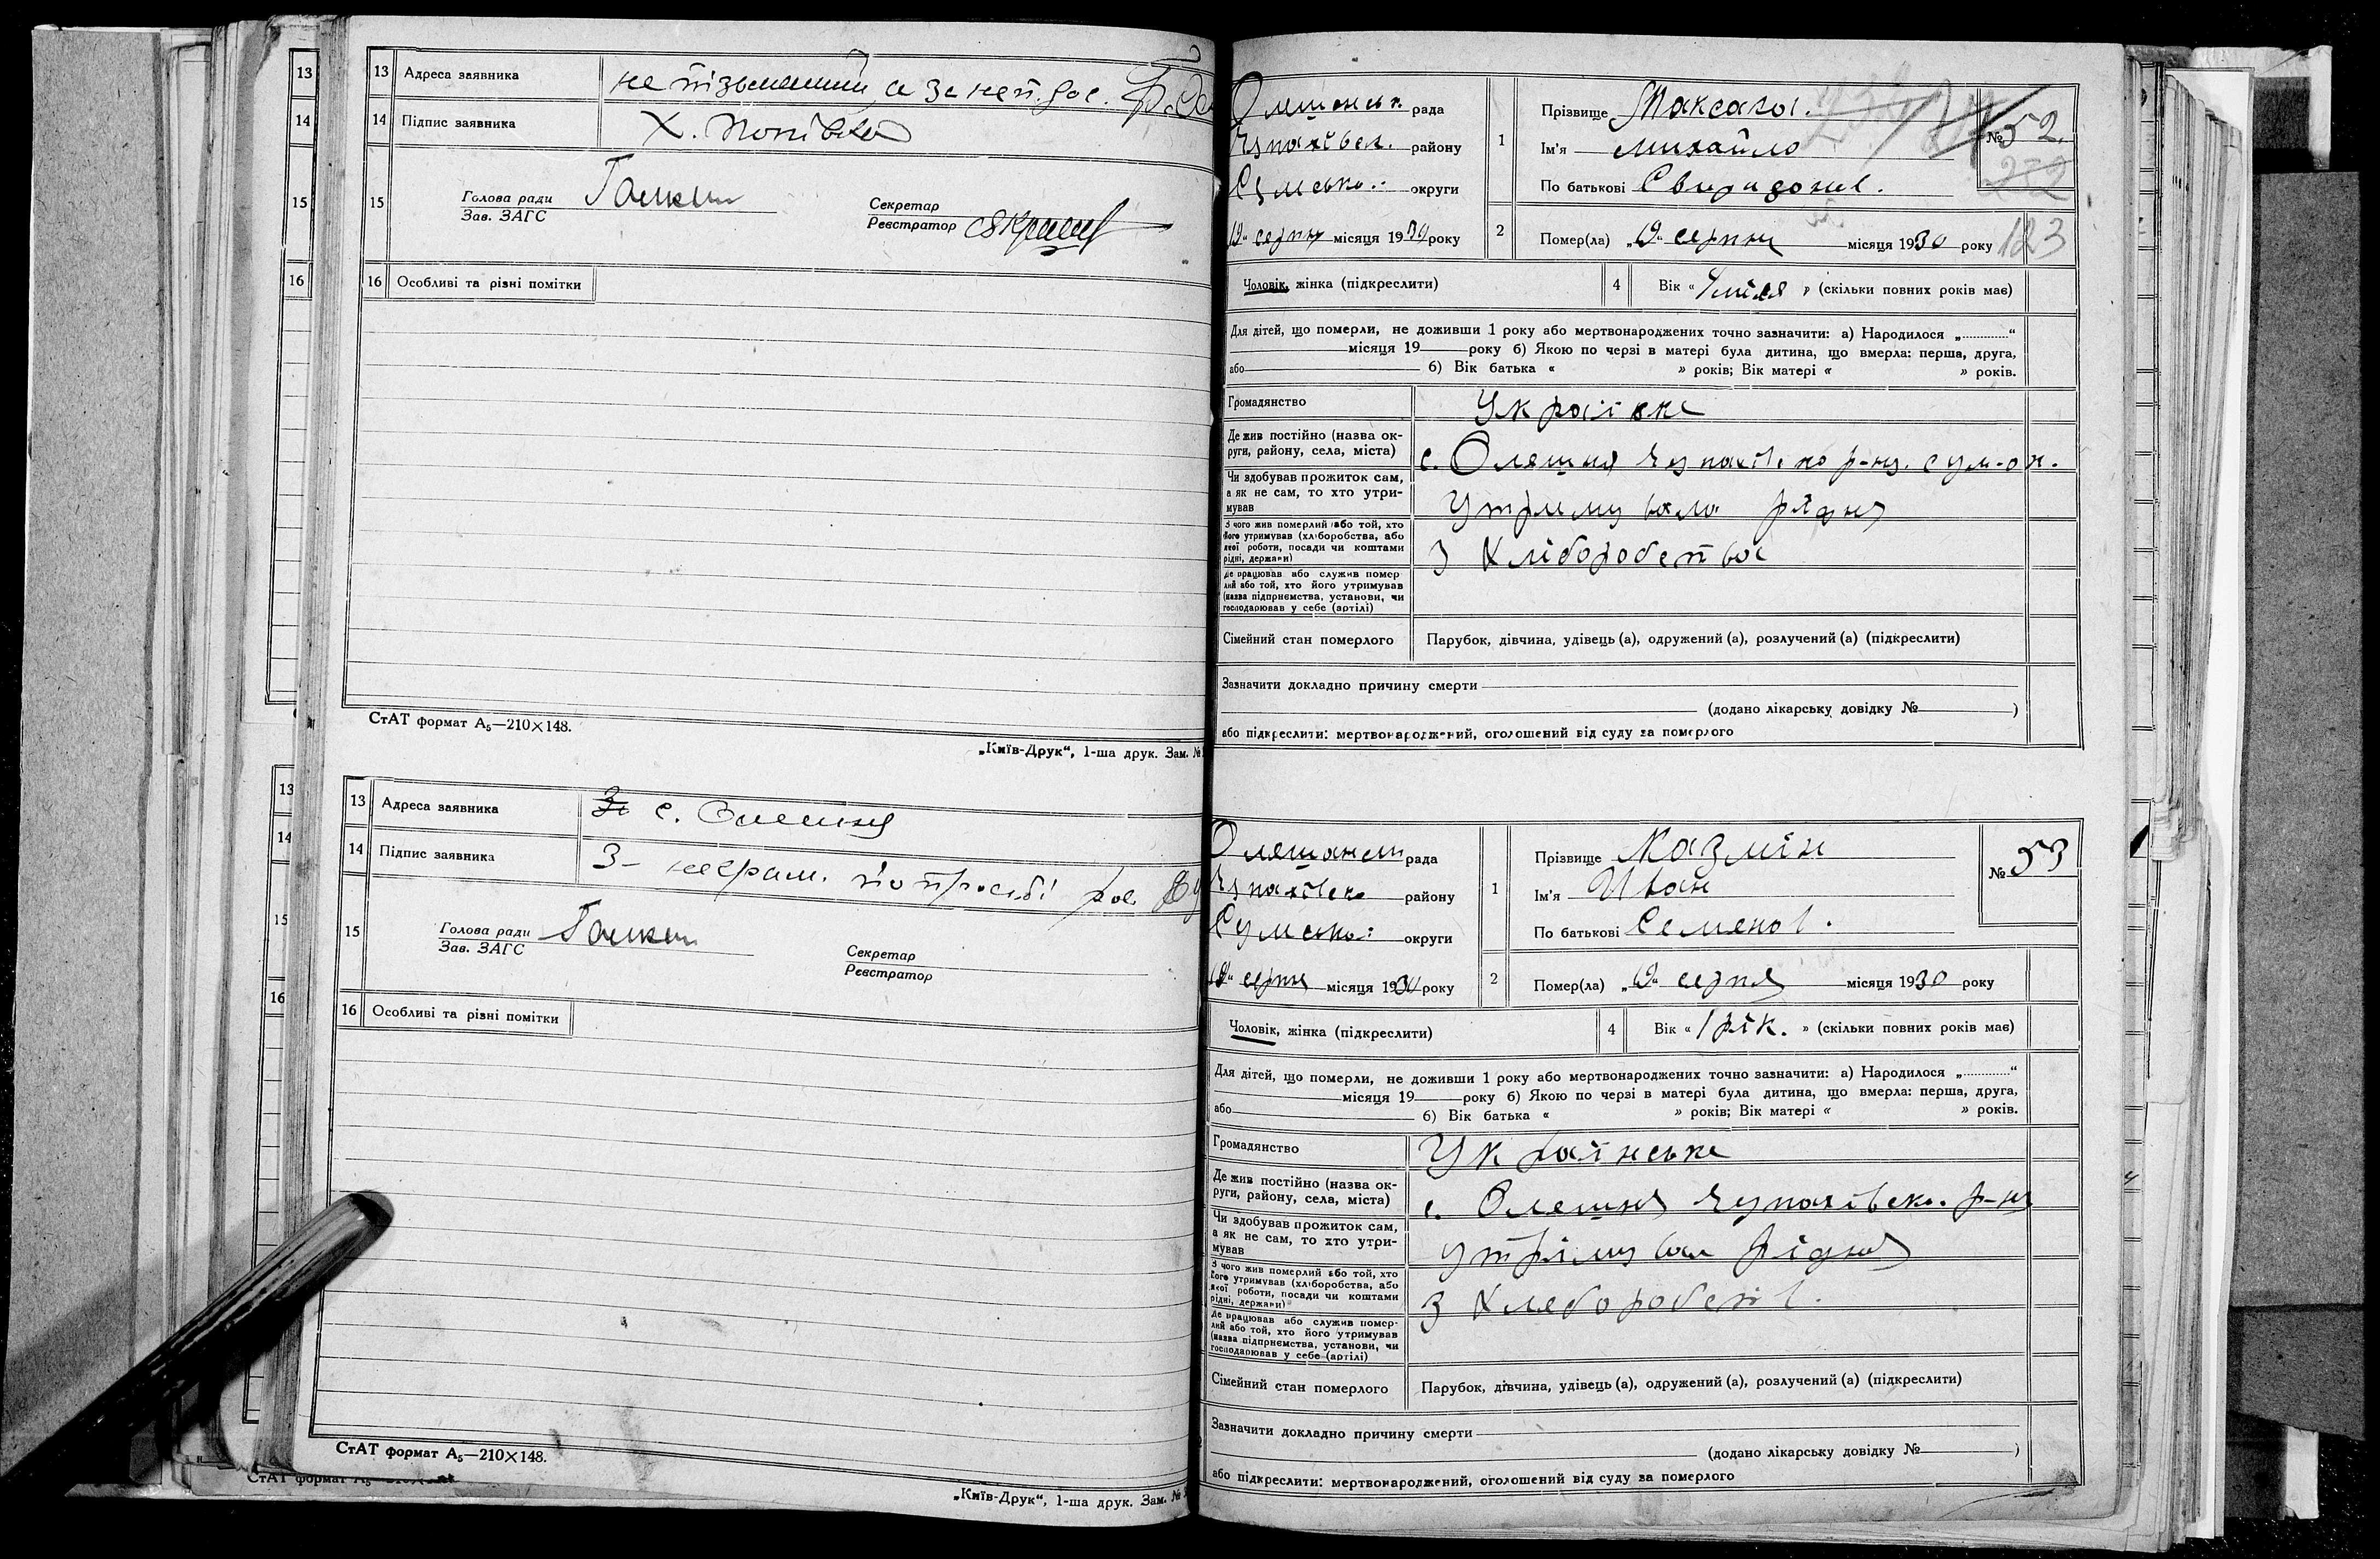 13 Адреса заявника
14 Підпис заявника Х. Попівка
15 Голова ради
Зав. ЗАГС
Секретар
Реєстратор
16 Особливі та різні помітки
СтАТ формат А₅—210×148.
„Київ-Друк“, 1-ша друк. Зам. №
13 Адреса заявника с. Олешня
14 Підпис заявника З- неграм. по просьбі
15 Голова ради
Зав. ЗАГС
Секретар
Реєстратор
16 Особливі та різні помітки
СтАТ формат А₅—210×148.
„Київ-Друк“, 1-ша друк. Зам. №
Олешанськ рада
Чупахівск. району
Сумсько: округи
„19“ серпня місяця 1930 року
1 Прізвище
Ім'я Михайло
По батькові Свиридонов.
№ 52
123
2 Помер(ла) „19“ серпня місяця 1930 року
Чоловік, жінка (підкреслити)
4 Вік « » (скільки повних років мав)
Для дітей, що померли, не доживши 1 року або мертвонароджених точно зазначити: а) Народилося „............“
місяця 19 року б) Якою по черзі в матері була дитина, що вмерла: перша, друга,
або б) Вік батька « » років; Вік матері « » років.
Громадянство Украї
Де жив постійно (назва ок-
руги, району, села, міста) с. Олешня Чупахівсько р-ну. сум-ок.
Чи здобував прожиток сам,
а як не сам, то хто утри-
мував Утримувала рідня
З чого жив померлий або той, хто
його утримував (хліборобства, або
якої роботи, посади чи коштами
рідні, держави) З Хліборобства
Де працював або служив помер-
лий або той, хто його утримував
(назва підприємства, установи, чи
господарював у себе (артілі)
Сімейний стан померлого Парубок, дівчина, удівець (а), одружений (а), розлучений (а) (підкреслити)
Зазначити докладно причину смерти
(додано лікарську довідку № )
або підкреслити: мертвонароджений, оголошений від суду за померлого
Олешанськ рада
Чупахівсько району
Сумсько: округи
„19“ серпня місяця 1930 року
1 Прізвище Казмін
Ім'я Иван
По батькові Семенов.
№ 53
2 Помер(ла) „19“ серпня місяця 1930 року
Чоловік, жінка (підкреслити)
4 Вік « 1 рік. » (скільки повних років мав)
Для дітей, що померли, не доживши 1 року або мертвонароджених точно зазначити: а) Народилося „............“
місяця 19 року б) Якою по черзі в матері була дитина, що вмерла: перша, друга,
або б) Вік батька « » років; Вік матері « » років.
Громадянство Українське
Де жив постійно (назва ок-
руги, району, села, міста) с. Олешня Чупахівсько. р-ну
Чи здобував прожиток сам,
а як не сам, то хто утри-
мував утрімувал рідня
З чого жив померлий або той, хто
його утримував (хліборобства, або
якої роботи, посади чи коштами
рідні, держави) З Хлеборобств.
Де працював або служив помер-
лий або той, хто його утримував
(назва підприємства, установи, чи
господарював у себе (артілі)
Сімейний стан померлого Парубок, дівчина, удівець (а), одружений (а), розлучений (а) (підкреслити)
Зазначити докладно причину смерти
(додано лікарську довідку № )
або підкреслити: мертвонароджений, оголошений від суду за померлого